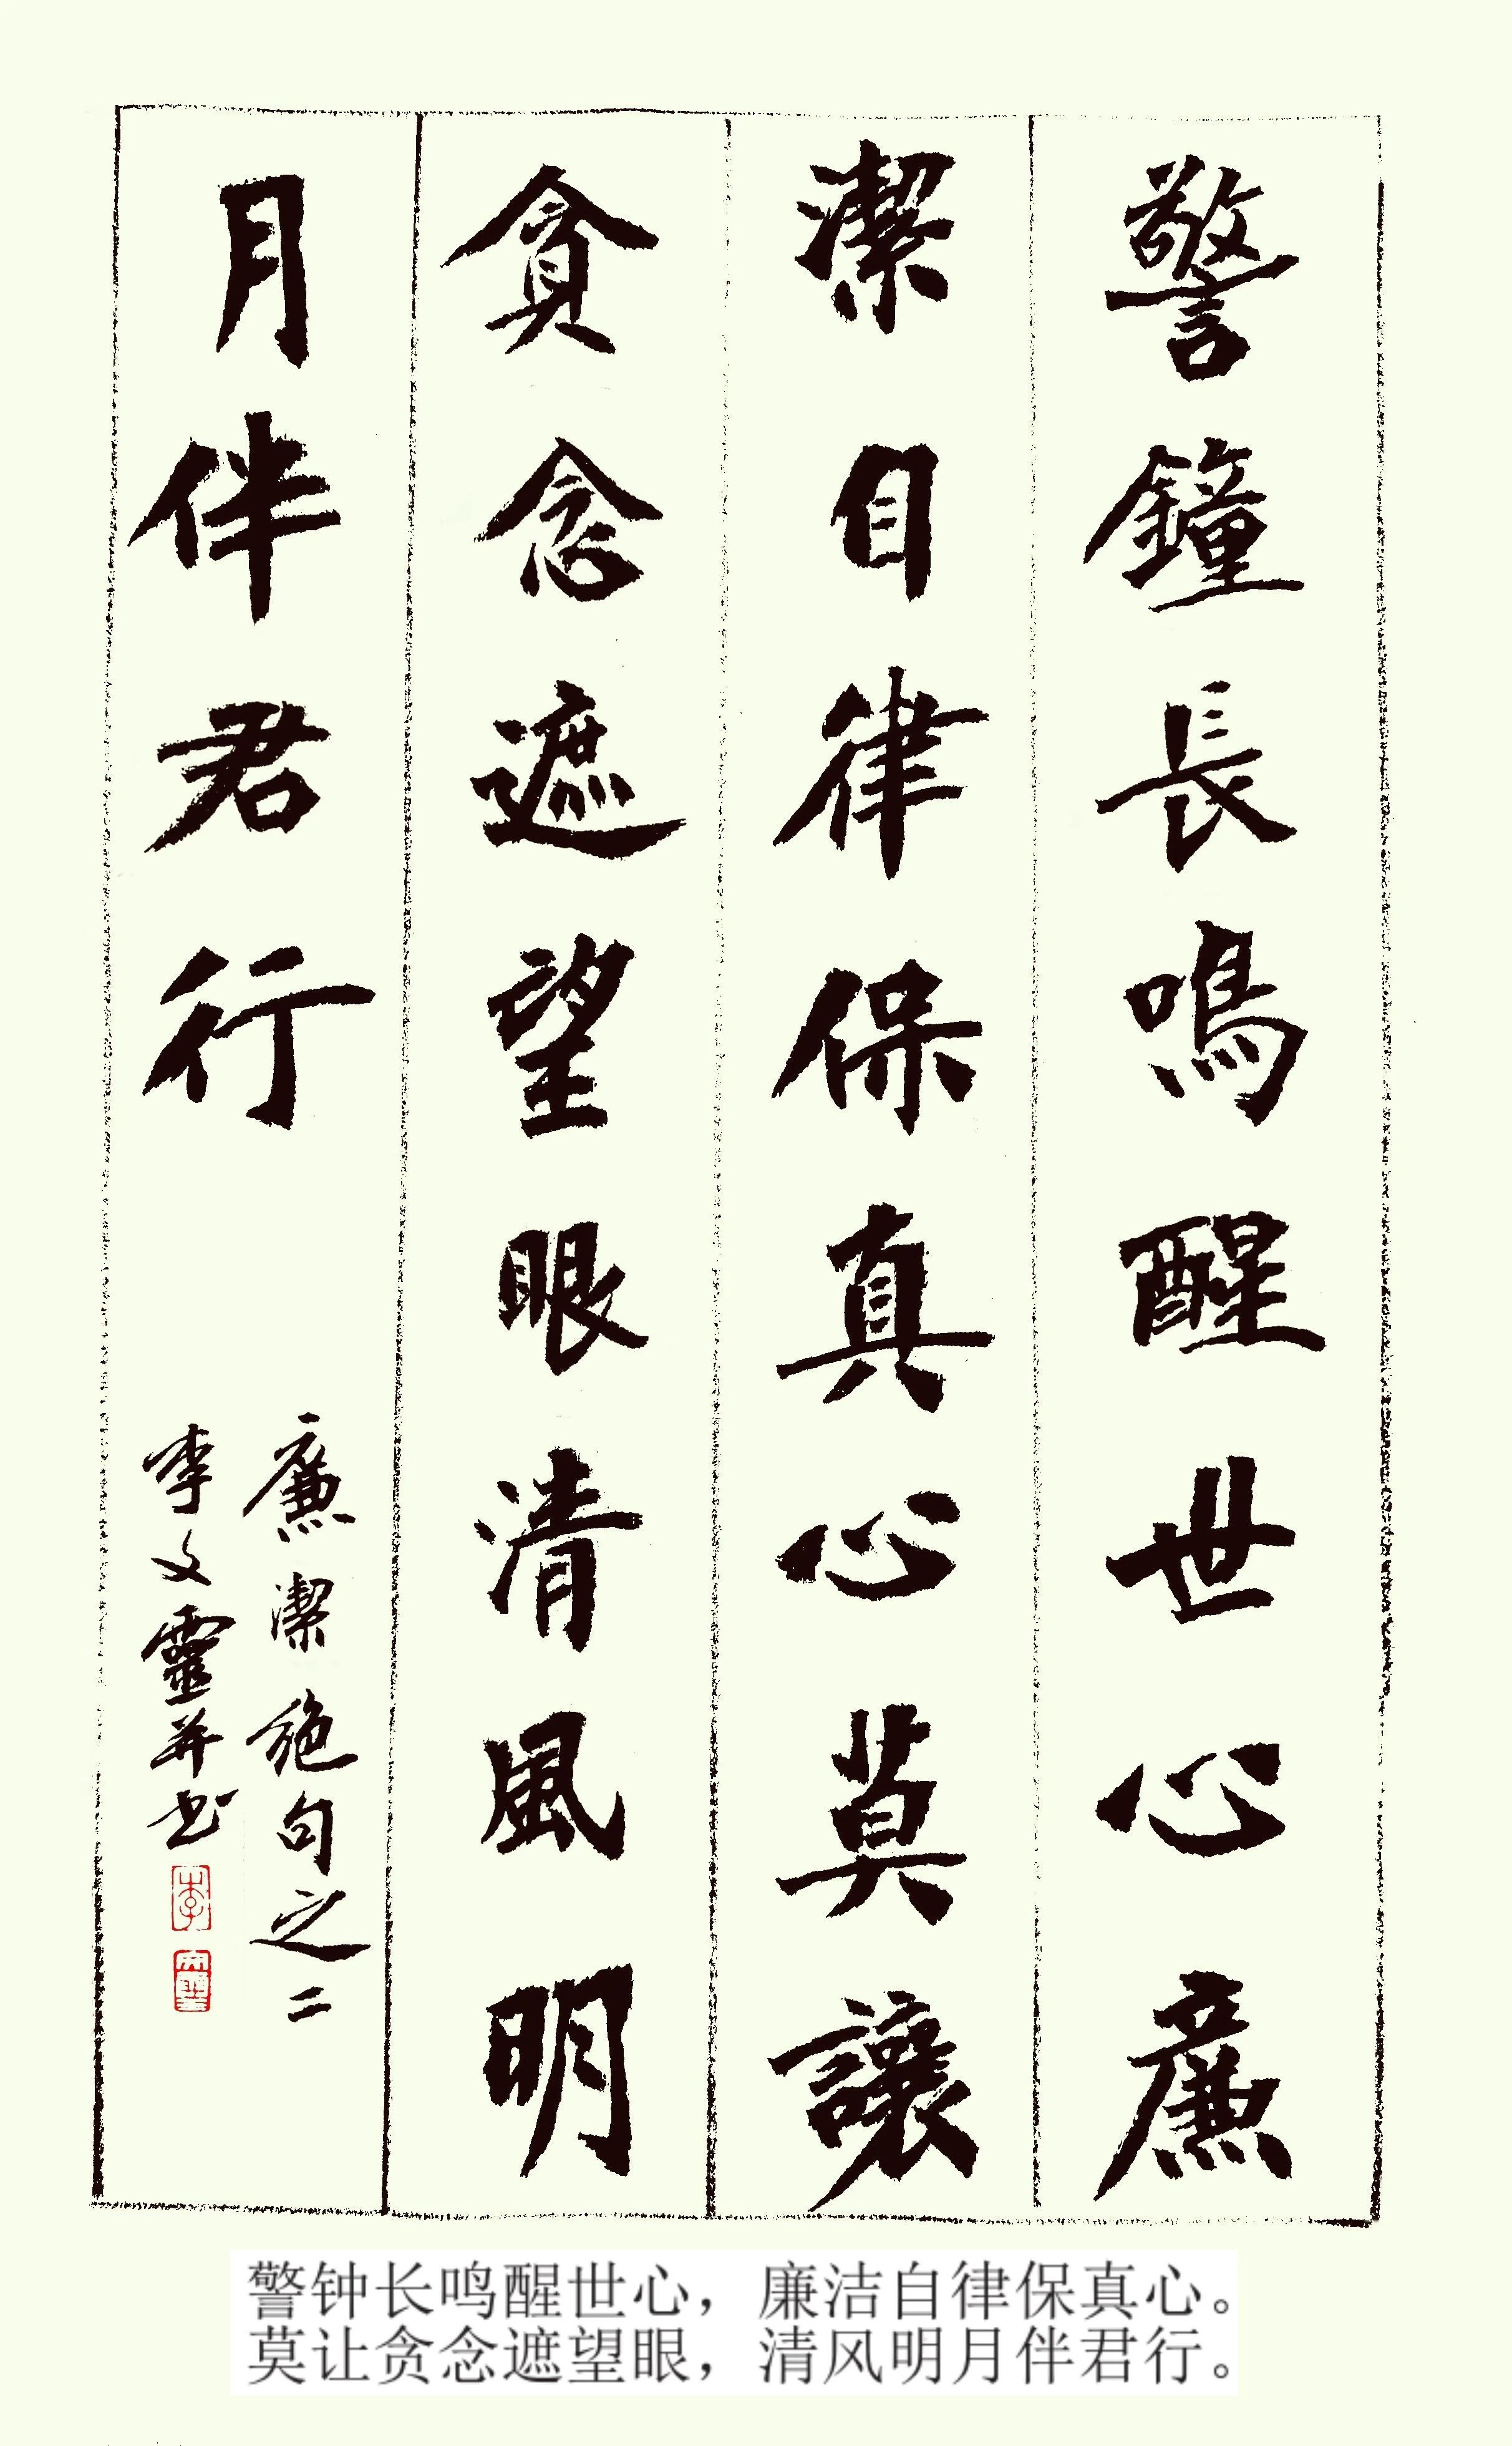 警鐘長鳴醒世心廉
潔自律保真心莫讓
貪念遮望眼清風明
月伴君行
廉潔絶句之二
李文靈并书
李
文靈
警钟长鸣醒世心，廉洁自律保真心。
莫让贪念遮望眼，清风明月伴君行。